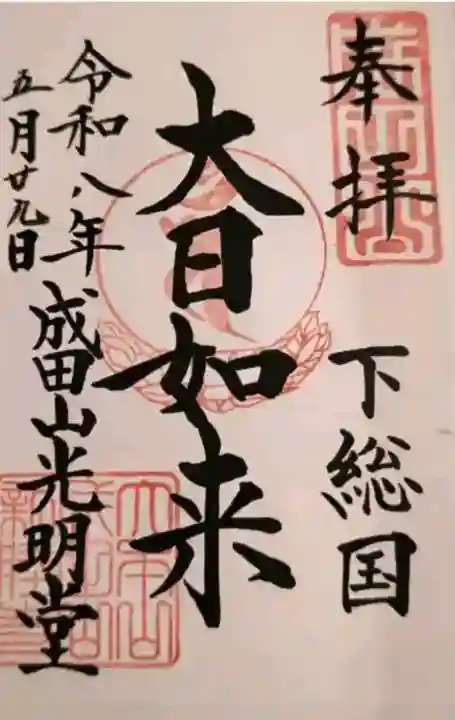 奉拝
下総国
大日如来
令和八年
五月廿九日
成田山光明堂